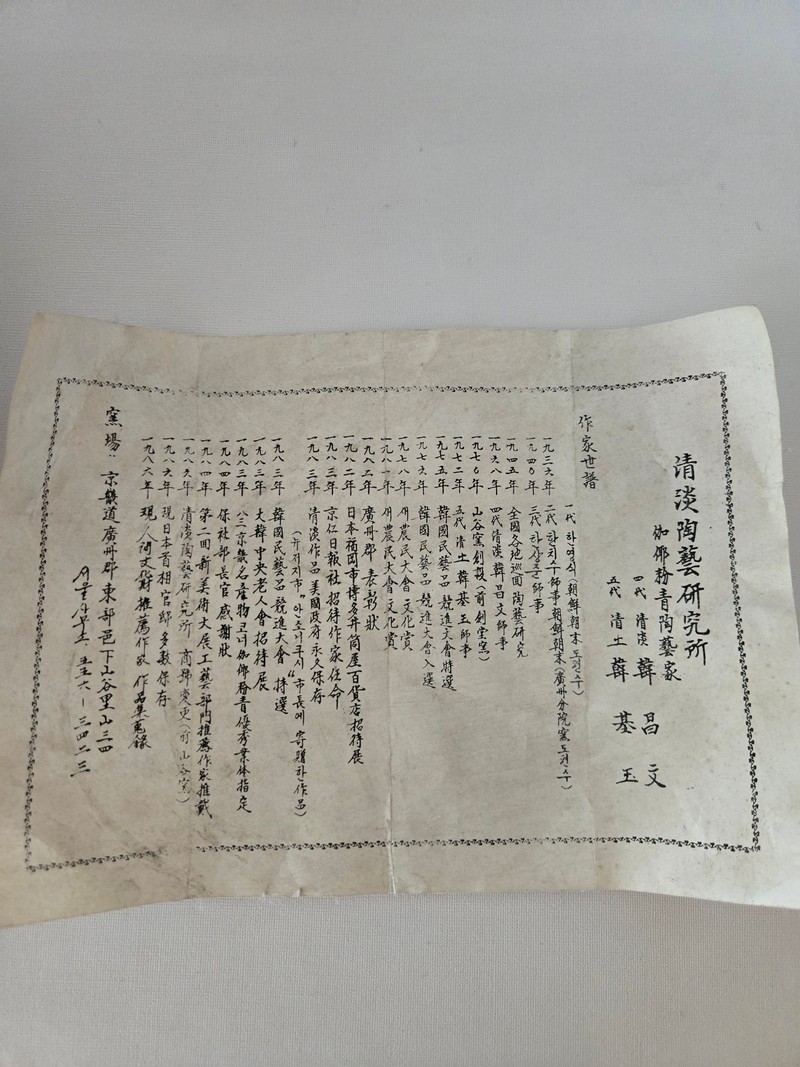 清淡陶藝研究所
伽倻粉青陶藝家
四代 清淡 韓昌文
五代 清土 韓基玉
作家世譜
一代 한여식(朝鮮朝末 도편수)
一九二六年 二代 한치수師事朝鮮朝末(廣州分院窯도편수)
一九四〇年 三代 師事
一九四五年 全國各地巡回陶藝研究
一九六八年 四代清淡韓昌文師事
一九七〇年 山谷窯創設(前創堂窯)
一九七二年 五代清土韓基玉師事
一九七五年 韓國民藝品競進大會特選
一九七六年 韓國民藝品競進大會入選
一九七八年 새農民大會文化賞
一九八一年 새農民大會文化賞
一九八二年 廣州郡 表彰狀
一九八二年 日本福岡市博多井筒屋百貨店招待展
一九八三年 京仁日報社招待作家任命
一九八三年 清淡作品 美國政府永久保存
市長에 寄贈한作品)
一九八三年 韓國民藝品競進大會 特選
一九八三年 大韓中央老人會招待展
一九八三年 八三京畿名産物코너伽倻粉青優秀業体指定
一九八四年 保社部長官感謝狀
一九八四年 第二回新美術大展工藝部門推薦作家推戴
一九八六年 清淡陶藝研究所 商號変更(前山谷窯)
一九八六年 現日本首相官邸多数保存
一九八六年 推薦作家 作品集蒐錄
窯場: 京畿道廣州郡東部邑下山谷里山三四
서울사무소 五六一三四二三